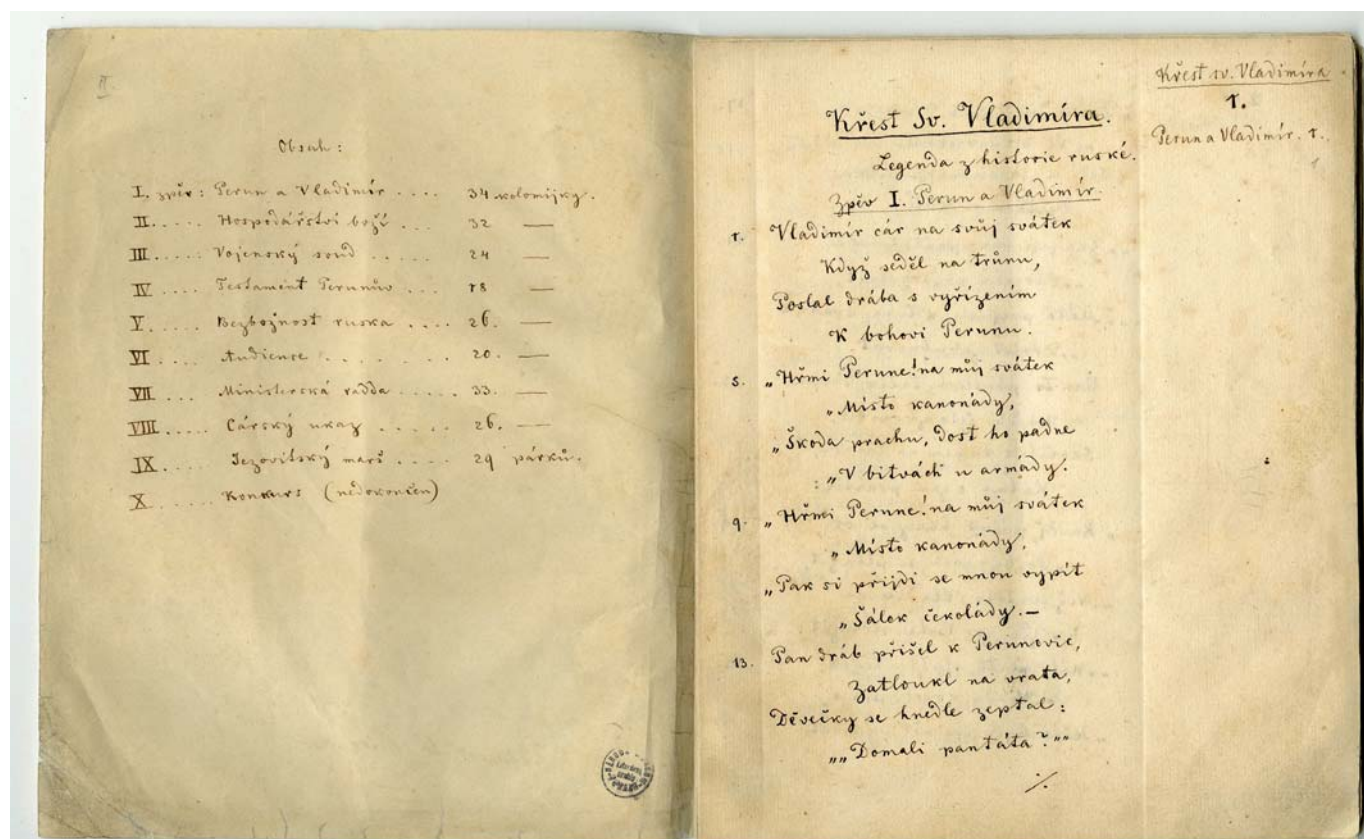 II.
Obsah:
I. zpěv: Perun a Vladimír .... 34 kolomijky.
II..... Hospodářství boží ... 32 —
III....: Vojenský soud ..... 24 —
IV .... Testament Perunův ... 18 —
V..... Bezbožnost ruska .... 26. —
VI .... Audience ........ 20. —
VII .... Ministerská radda ..... 33. —
VIII..... Cárský ukaz ..... 26. —
IX ..... Jezovitský marš .... 29 párků.
X ..... Konkurs (nedokončen)
Křest sv. Vladimíra
1.
Perun a Vladimír. 1.
1
Křest Sv. Vladimíra.
Legenda z historie ruské.
Zpěv I. Perun a Vladimír.
1. Vladimír cár na svůj svátek
Když seděl na trůnu,
Poslal drába s vyřízením
K bohovi Perunu.
5. „Hřmi Perune! na můj svátek
„Místo kanonády,
„Škoda prachu, dosť ho padne
„V bitvách u armády.
9. „Hřmi Perune! na můj svátek
„Místo kanonády,
„Pak si přijdi se mnou vypít
„Šálek čekolády. —
13. Pan dráb přišel k Perunovic,
Zatloukl na vrata,
Děvečky se hnedle zeptal:
„„Domali pantáta?""
./.